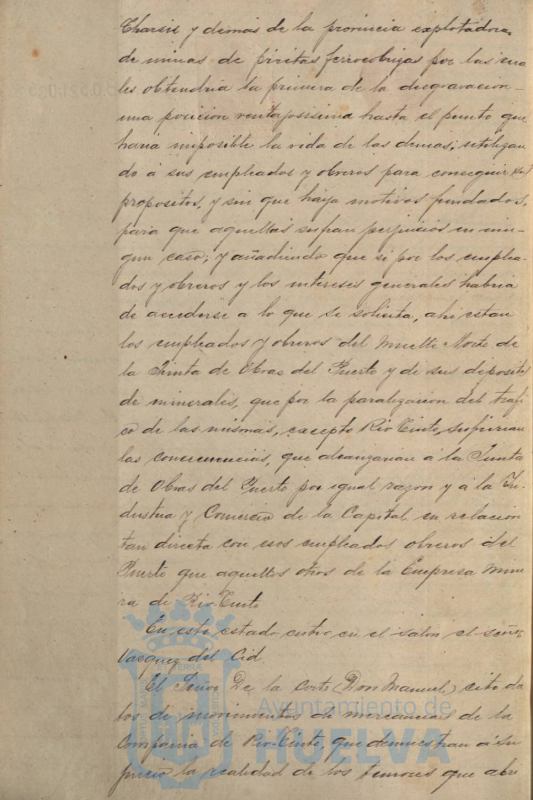 Tharsis y demás de la provincia explotadoras
de minas de piritas ferrocobrizas por las cua
les obtendria la primera de la desgravacion
una posicion ventajosisima hasta el punto que
haria imposible la vida de las demas, utilizan
do á sus empleados y obreros para conseguir sus
propositos, y sin que haya motivos fundados,
para que aquellas sufran perjuicios en nin-
gun caso; y añadiendo que si por los emplea-
dos y obreros y los intereses generales habria
de accederse a lo que se solicita, ahi estan
los empleados y obreros del Muelle Norte de
la Junta de Obras del Puerto y de sus depositos
de minerales, que por la paralizacion del trafi
co de las mismas, excepto Rio Tinto, sufririan
las consecuencias, que alcanzarian á la Junta
de Obras del Puerto por igual razon y á la In-
dustria y Comercio de la Capital en relacion
tan directa con esos empleados obreros del
Puerto que aquellos otros de la Empresa mine
ra de Rio-Tinto
En este estado entró en el salon el señor
Vazquez del Cid
El Señor De la Corte (Don Manuel) citó da
tos de movimientos de mercancias de la
Compañia de Rio-Tinto, que demuestran á su
juicio la realidad de los temores que abri
Ayuntamiento de
HUELVA